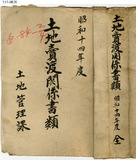 昭和十四年度
土地賣渡関係書類
土地管理課
土地賣渡関係書類
昭和十四年度
全